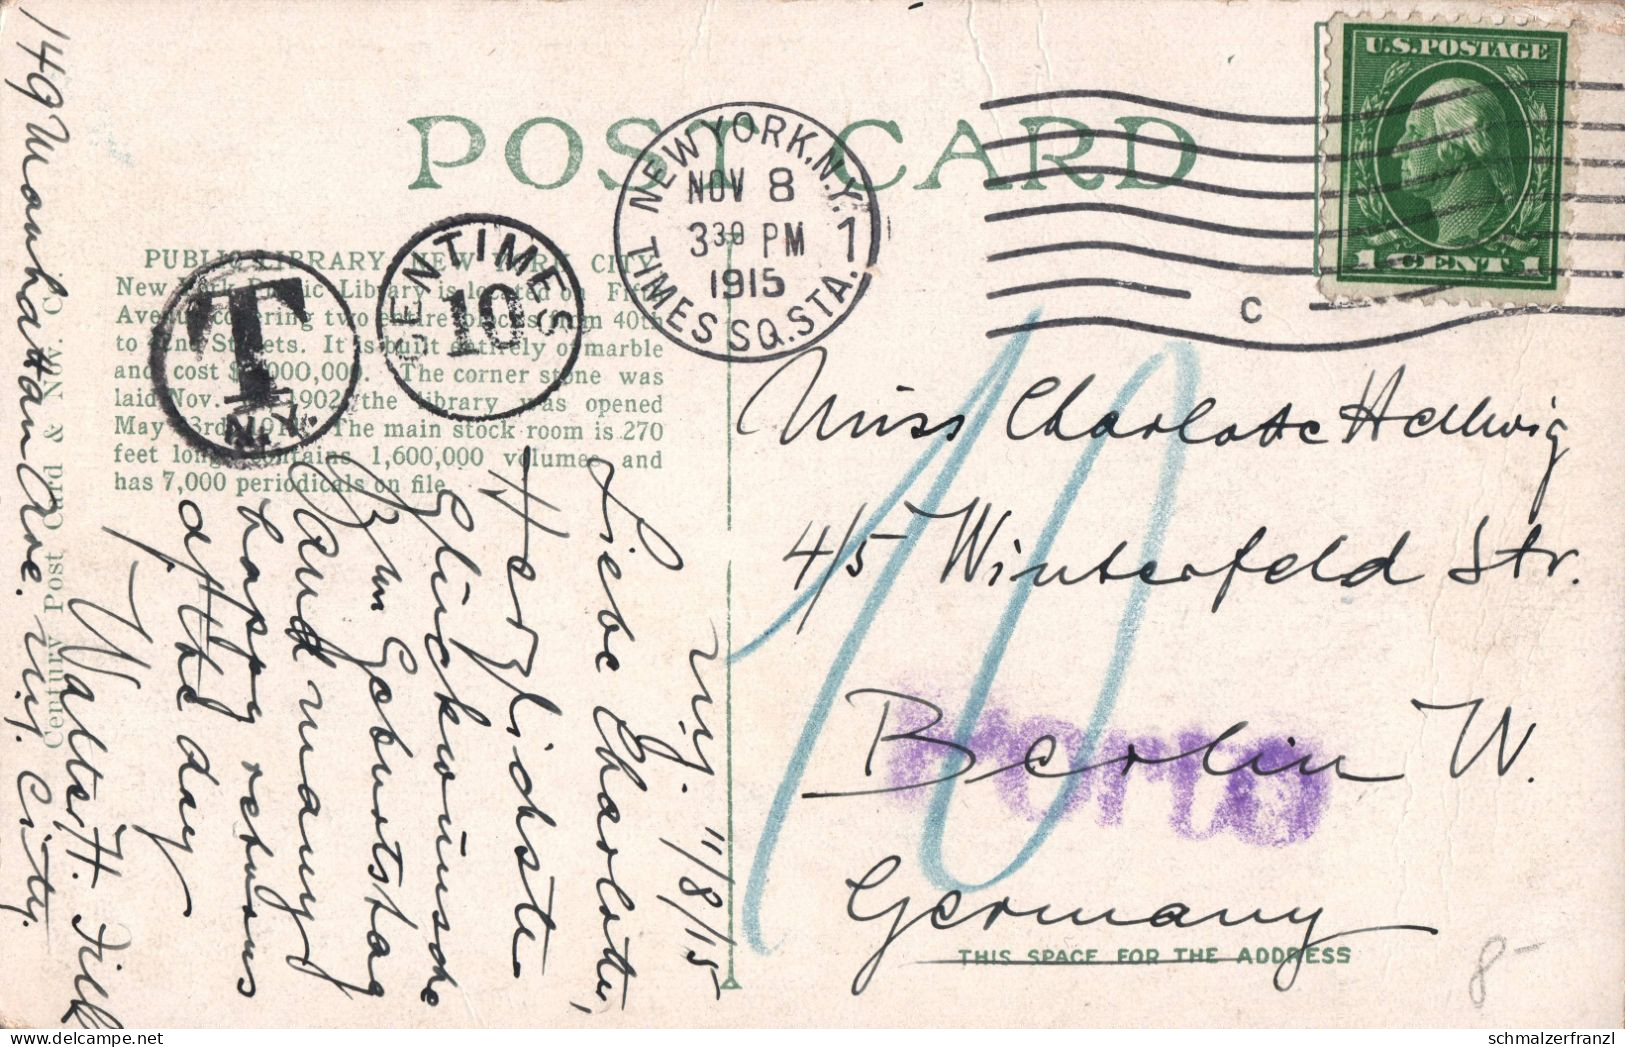 POST CARD
NEW YORK, N.Y. 1
NOV 8
3 30 PM
1915
TIMES SQ. STA.
C
U.S. POSTAGE
1 CENT 1
CENTIMES
10
T
N.Y.
PUBLIC LIBRARY, NEW YORK CITY.
New York Public Library is located on Fifth
Avenue covering two entire blocks from 40th
to 42nd Streets. It is built entirely of marble
and cost $ ,000,000. The corner stone was
laid Nov. 1902, the library was opened
May 23rd, 191 . The main stock room is 270
feet long, contains 1,600,000 volumes and
has 7,000 periodicals on file.
Century Post Card & Nov. Co.
N.Y. 11/8/15
Liebe Charlotte,
Herzlichste
Glückwünsche
zum Geburtstag
and many
happy returns
of the day
Walter H.
149 Manhattan Ave. N.Y. City.
Miss Charlotte Hellwig
4/5 Winterfeld Str.
Berlin W.
Germany
10
Porto
THIS SPACE FOR THE ADDRESS
8-
schmalzerfranzl
delcampe.net